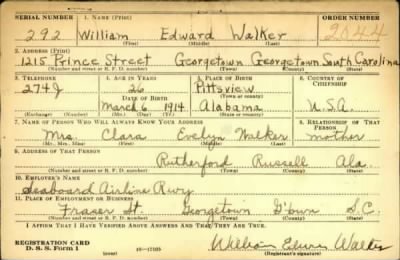 SERIAL NUMBER 1. NAME (Print) ORDER NUMBER
292 William Edward Walker 2044
(First) (Middle) (Last)
2. ADDRESS (Print)
1215 Prince Street Georgetown Georgetown South Carolina
(Number and street or R. F. D. number) (Town) (County) (State)
3. TELEPHONE 4. AGE IN YEARS 5. PLACE OF BIRTH 6. COUNTRY OF CITIZENSHIP
274J 26 Pittsview
DATE OF BIRTH (Town or county)
March 6 1914 Alabama U.S.A.
(Exchange) (Number) (Mo.) (Day) (Yr.) (State or country)
7. NAME OF PERSON WHO WILL ALWAYS KNOW YOUR ADDRESS 8. RELATIONSHIP OF THAT PERSON
Mrs. Clara Evelyn Walker mother
(Mr., Mrs., Miss) (First) (Middle) (Last)
9. ADDRESS OF THAT PERSON
Rutherford Russell Ala.
(Number and street or R. F. D. number) (Town) (County) (State)
10. EMPLOYER'S NAME
Seaboard Airline Rwy.
11. PLACE OF EMPLOYMENT OR BUSINESS
Fraser St. Georgetown G'town S.C.
(Number and street or R. F. D. number) (Town) (County) (State)
I AFFIRM THAT I HAVE VERIFIED ABOVE ANSWERS AND THAT THEY ARE TRUE.
REGISTRATION CARD
D. S. S. Form 1 16—17105 William Edward Walker
(over) (Registrant's signature)